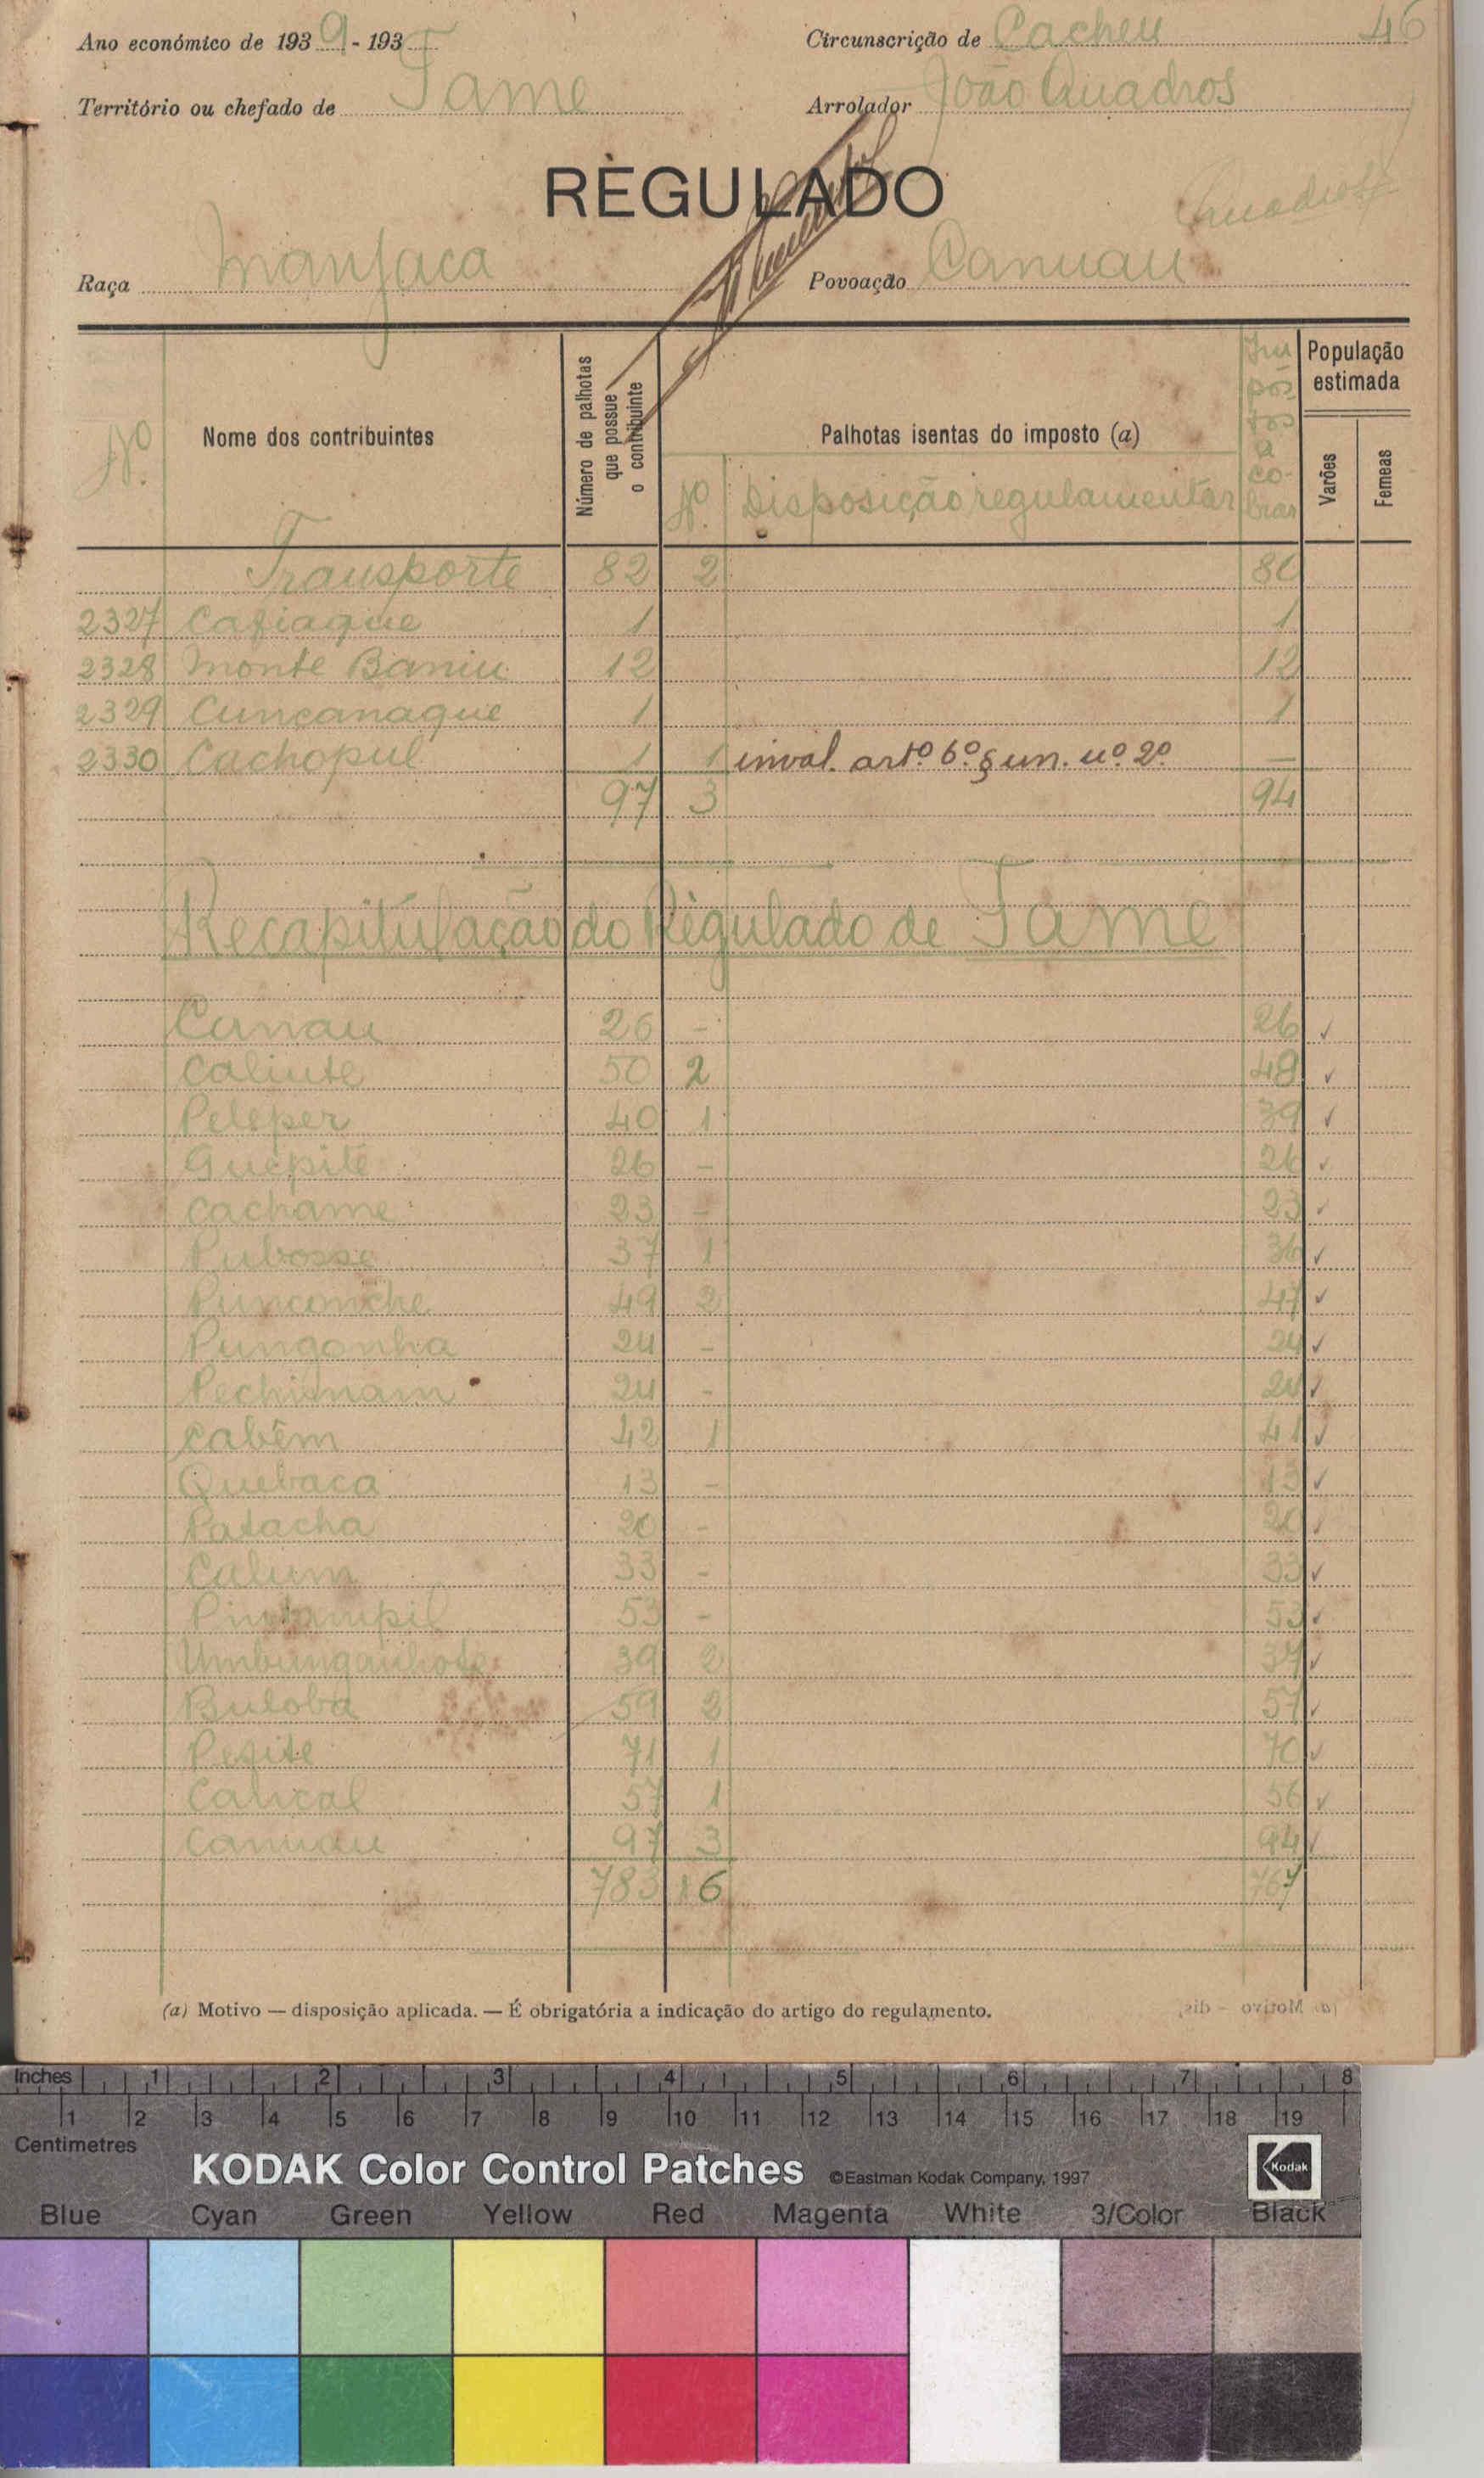 Ano económico de 1939-193 Circunscrição de Cacheu 46
Território ou chefado de Tame Arrolador João Quadros
REGULADO
Quadros
Raça Manjaca Povoação Canuau
Nº Nome dos contribuintes Número de palhotas que possue o contribuinte Palhotas isentas do imposto (a) Nº Disposição regulamentar Impostos a cobrar População estimada Varões Femeas
Transporte 82 2 80
2327 Cafiaque 1 1
2328 Monte Baniu 12 12
2329 Cunçanaque 1 1
2330 Cachopul 1 1 inval. artº 6º § un. nº 2º —
97 3 94
Recapitúlação do Règulado de Tame
Canau 26 - 26 ✓
Caliute 50 2 48 ✓
Peleper 40 1 39 ✓
Quepite 26 - 26 ✓
Cachame 23 - 23 ✓
Pubosse 37 1 36 ✓
Punconche 49 2 47 ✓
Pungonha 24 - 24 ✓
Pechimam 24 - 24 ✓
Cabêm 42 1 41 ✓
Quebaca 13 - 13 ✓
Patacha 20 - 20 ✓
Calum 33 - 33 ✓
53 - 53 ✓
39 2 37 ✓
Buloba 59 2 57 ✓
Pesite 71 1 70 ✓
Caucal 57 1 56 ✓
Canuau 97 3 94 ✓
783 16 767
(a) Motivo — disposição aplicada. — É obrigatória a indicação do artigo do regulamento.
Inches 1 2 3 4 5 6 7 8
1 2 3 4 5 6 7 8 9 10 11 12 13 14 15 16 17 18 19
Centimetres
KODAK Color Control Patches ©Eastman Kodak Company, 1997 Kodak
Blue Cyan Green Yellow Red Magenta White 3/Color Black